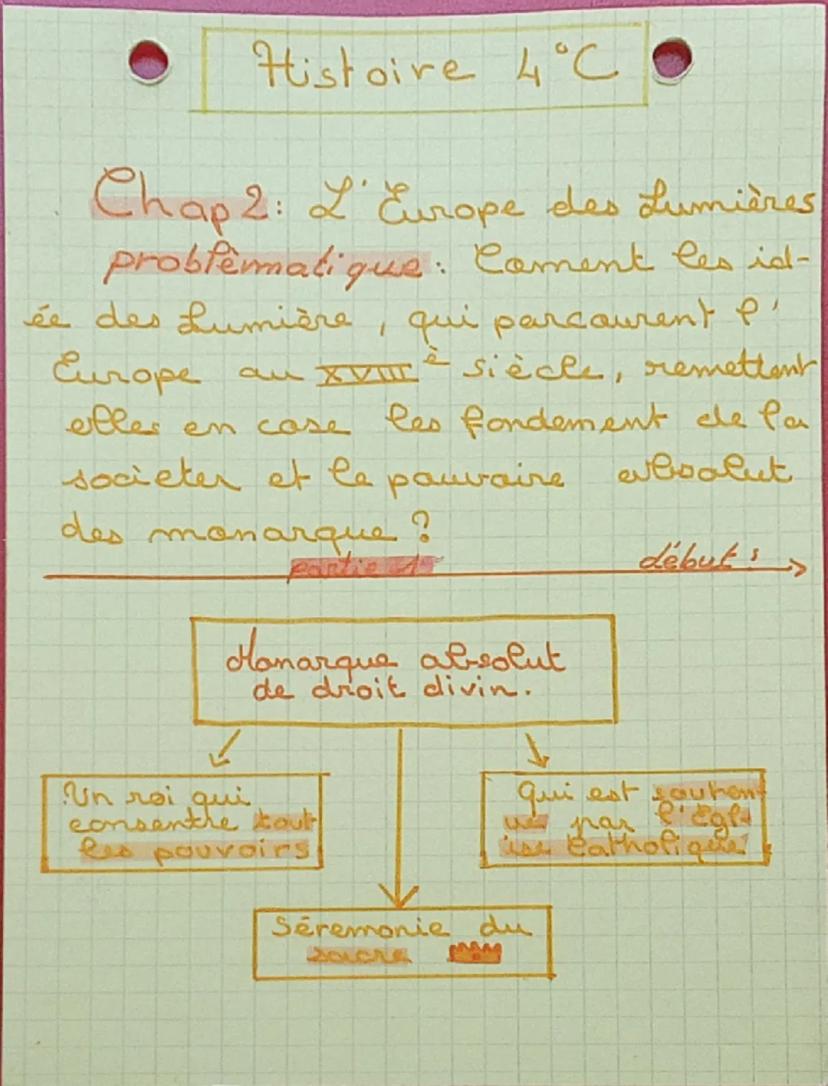 Histoire 4°C
Chap 2: L'Europe des Lumières
problèmatique: Coment les id-
ée des Lumière, qui parcourent l'
Europe au XVIII è siècle, remettent
elles en case les fondement de la
societer et le pouvoire absolut
des monarque ?
partie 1
début :
Monarque absolut
de droit divin.
Un roi qui
consentre tout
les pouvoirs
Qui est souten
ue par l'égl
ise Catholique
Séremonie du
sacre